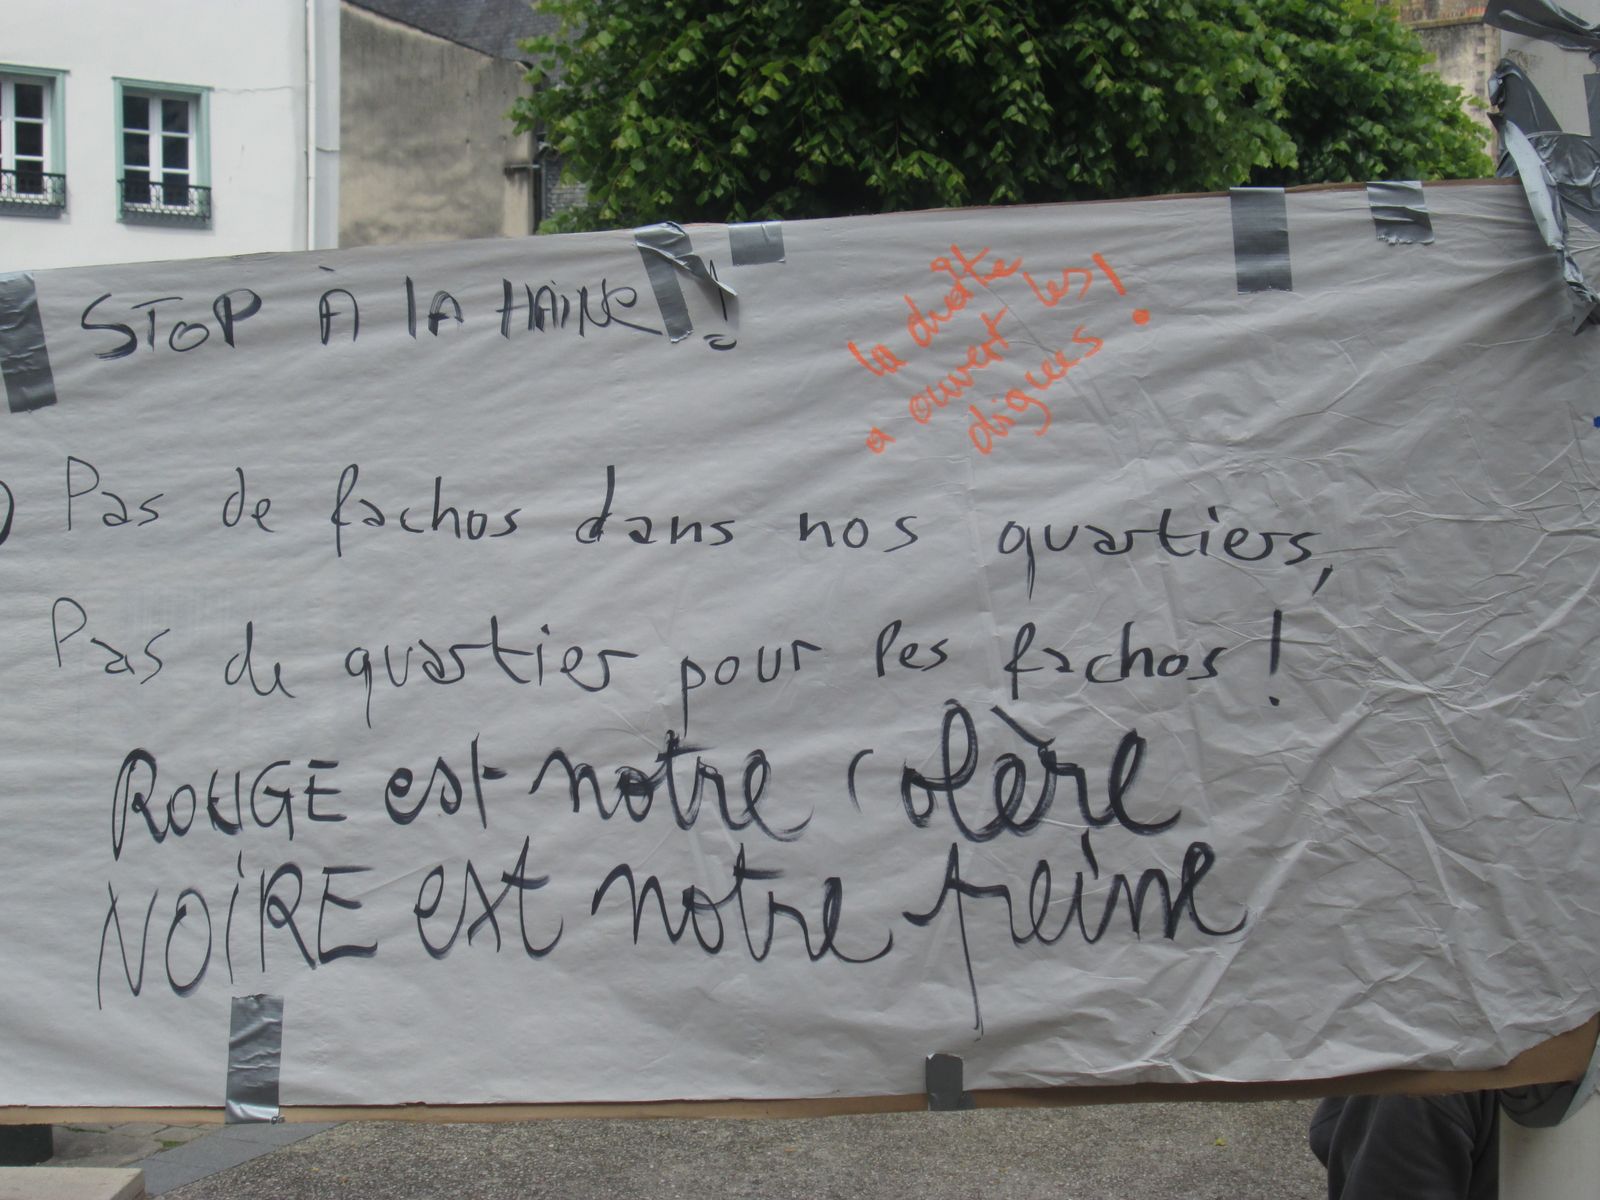 STOP À LA HAINE !
la droite
a ouvert les
digues !
Pas de fachos dans nos quartiers,
Pas de quartier pour les fachos !
ROUGE est notre colère
NOIRE est notre peine